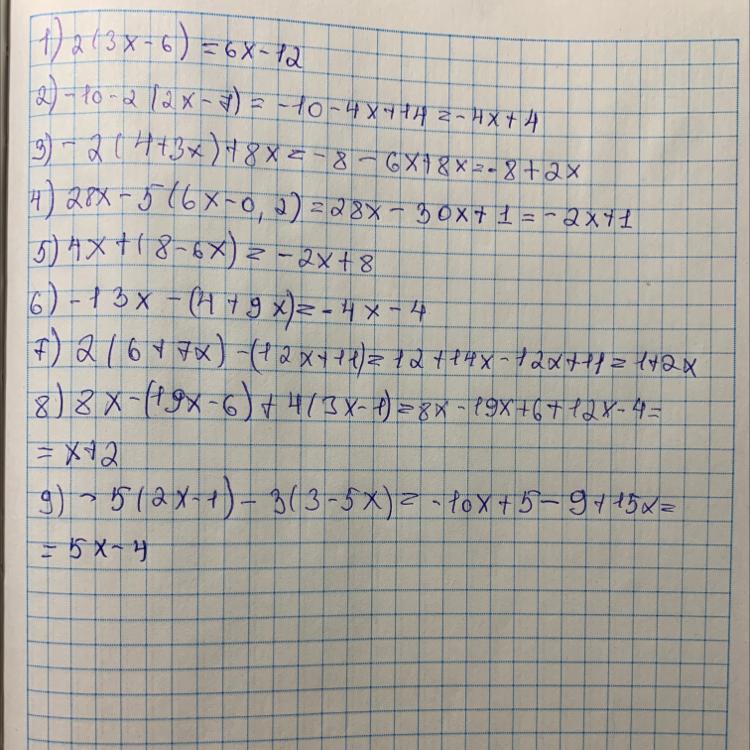 1) 2(3x-6) = 6x-12
2) -10-2(2x-7) = -10-4x+14 = -4x+4
3) -2(4+3x)+8x = -8-6x+8x = -8+2x
4) 28x-5(6x-0,2) = 28x-30x+1 = -2x+1
5) 4x+(8-6x) = -2x+8
6) -13x-(4+9x) = -4x-4
7) 2(6+7x)-(12x+11) = 12+14x-12x+11 = 1+2x
8) 8x-(19x-6)+4(3x-1) = 8x-19x+6+12x-4=
= x+2
9) -5(2x-1)-3(3-5x) = -10x+5-9+15x=
= 5x-4